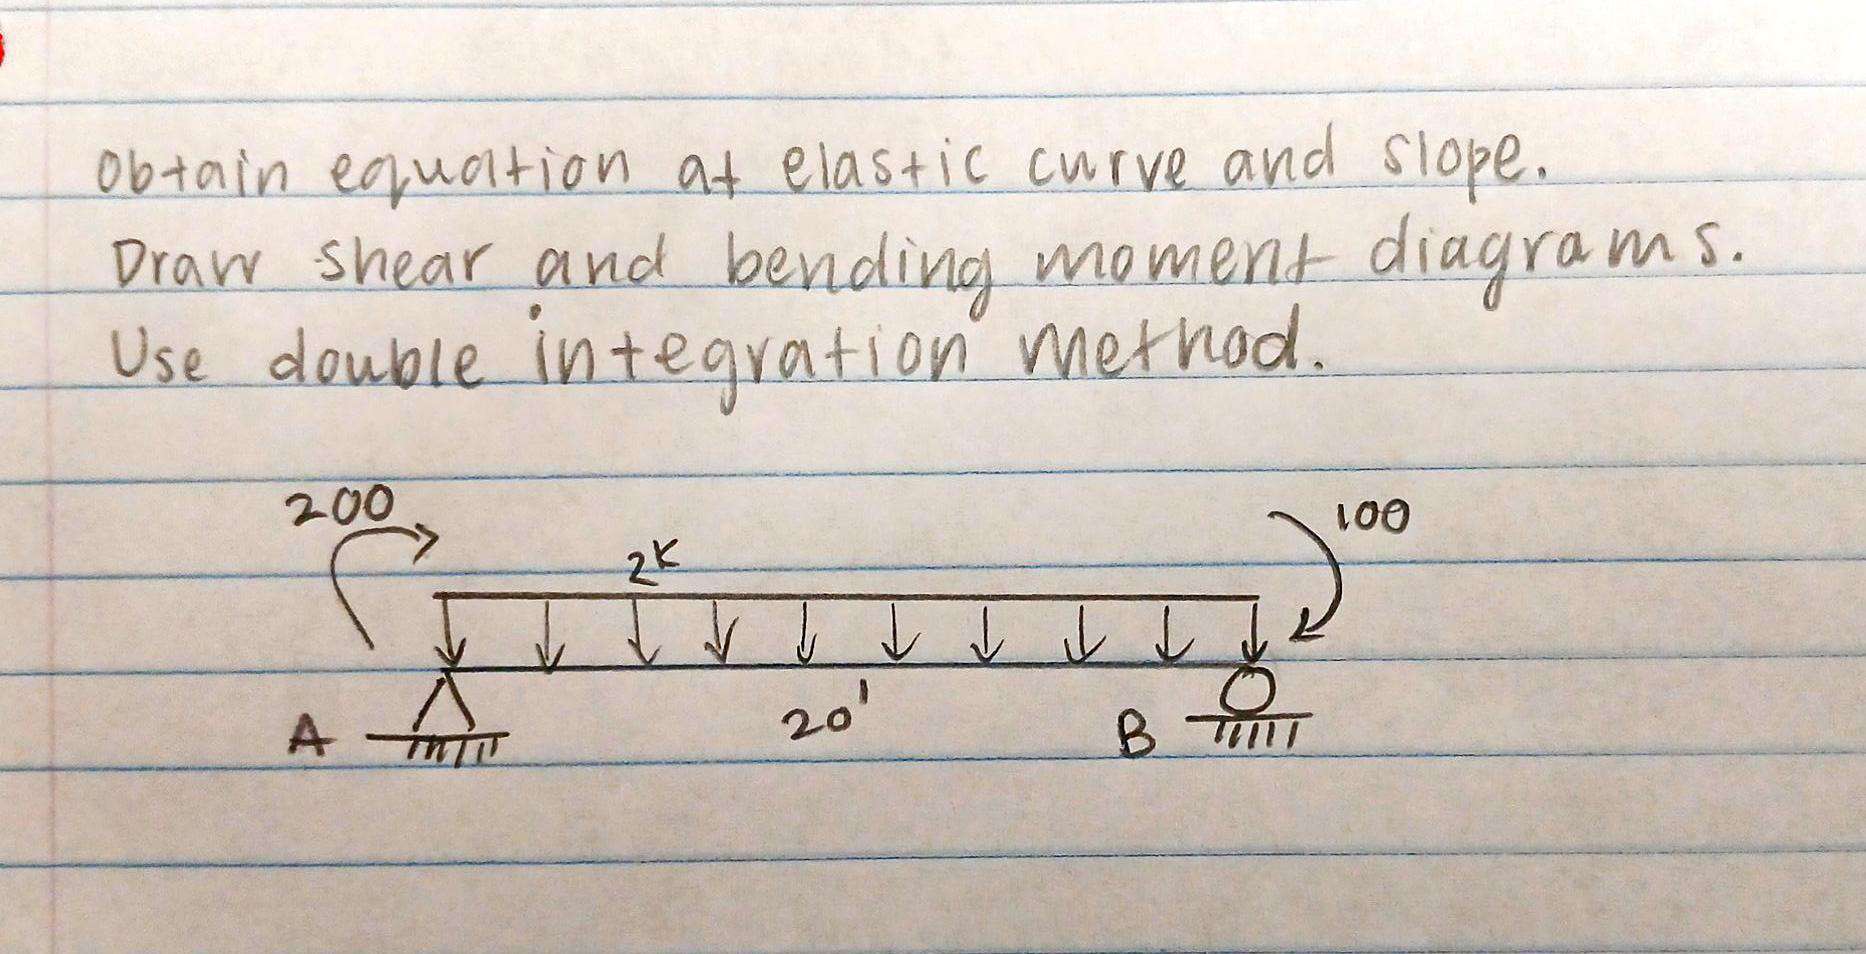 Obtain equation at elastic curve and slope.
Draw shear and bending moment diagrams.
Use double integration method.
200
100
2K
20'
A
B